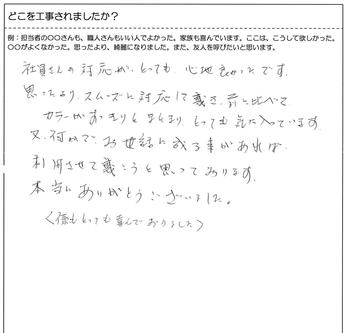 どこを工事されましたか？
例：担当者の〇〇さんも、職人さんもいい人でよかった。家族も喜んでいます。ここは、こうして欲しかった。
〇〇がよくなかった。思ったより、綺麗になりました。また、友人を呼びたいと思います。
社員さんの対応が、とっても、心地良かったです。
思ったより、スムーズに対応して戴き、前に比べて
カラーがすっきりとまとまり、とっても気に入っています
又、何かで、お世話に成る事があれば、
利用させて戴こうと思っております。
本当にありがとうございました。
もとっても喜んでおりました